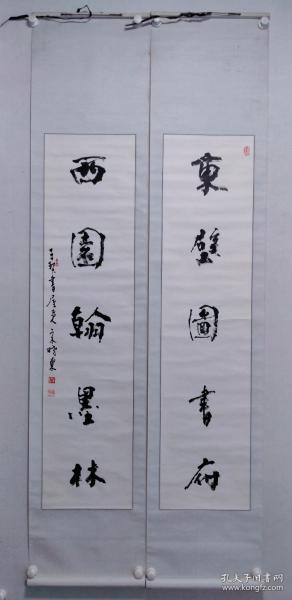 東壁圖書府
西園翰墨林
孔夫子旧书网